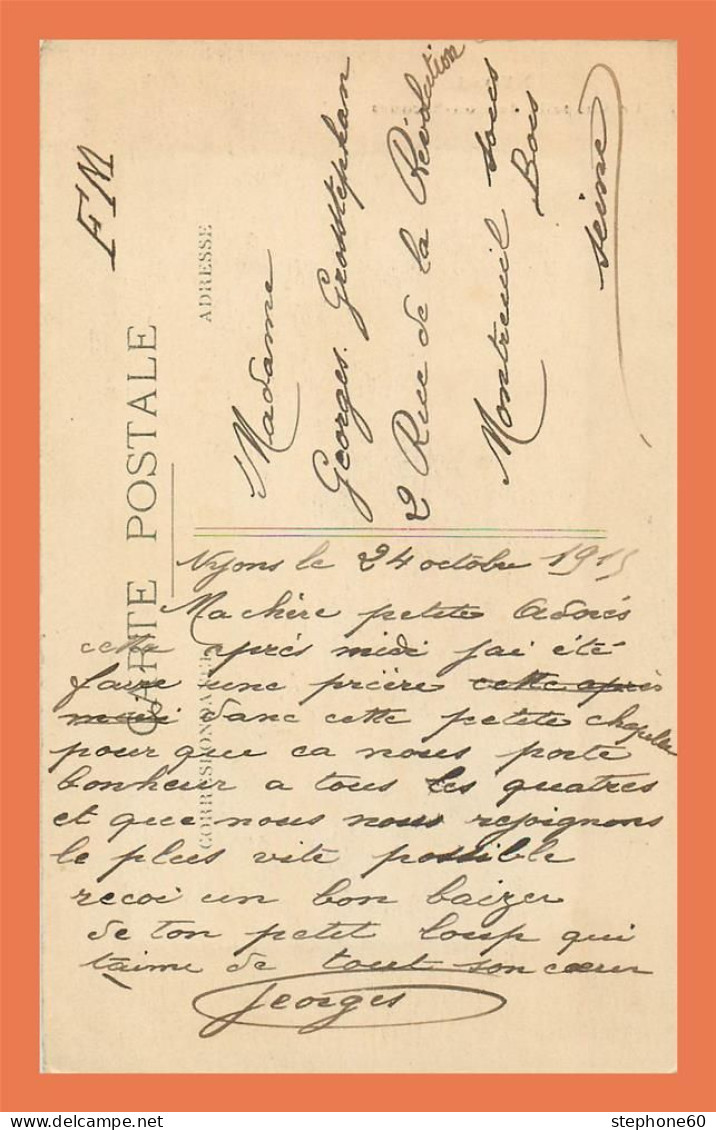 FM
CARTE POSTALE
ADRESSE
Madame
Georges. Grosstephan
2 Rue de la Révolution
Montreuil sous
Bois
Seine
CORRESPONDANCE
Nyons le 24 octobre 1915
Ma chère petite Adorés
cette après midi jai été
faire une prière cette après
midi danc cette petite chapelle
pour que ca nous porte
bonheur a tous les quatres
et que nous nous rejoignons
le plus vite possible
recoi un bon baizer
de ton petit loup qui
taime de tout son cœur
Georges
stephone60